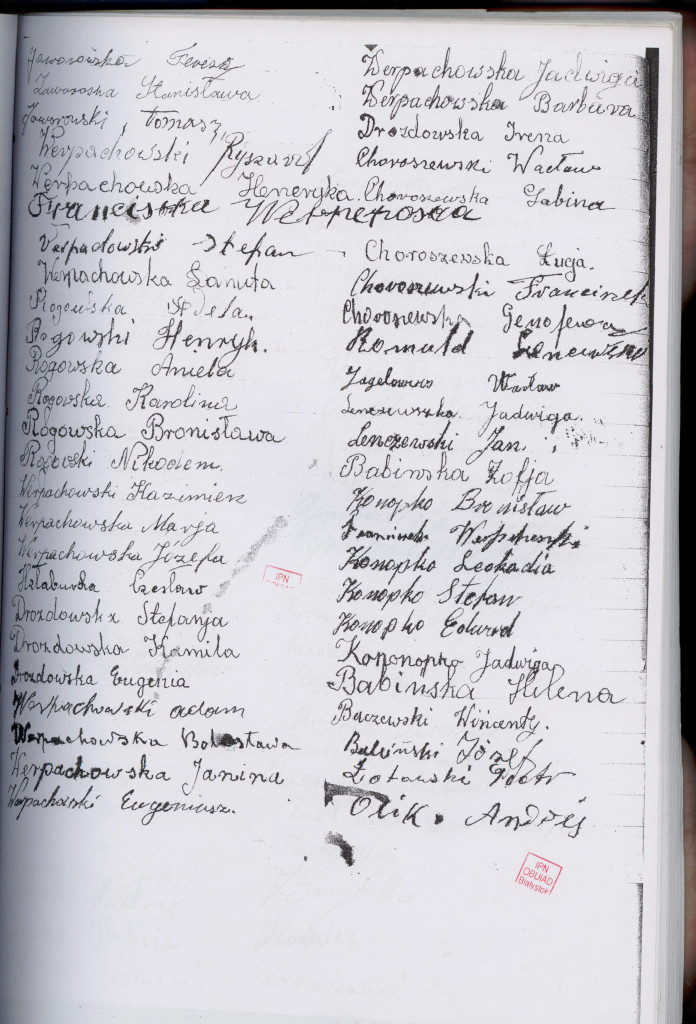 Jaworowska Teresa
Jaworoska Stanisława
Jaworowski Tomasz
Werpachowski Ryszard
Werpachowska Henryka
Franciszka
Werpadowski Stefan
Werpachowska Danuta
Rogowska Adela
Rogowski Henryk.
Rogowska Aniela
Rogowska Karolina
Rogowska Bronisława
Rogowski Nikodem.
Werpachowski Kazimierz
Werpachowska Marja
Werpachowska Józefa
Czesław
Drozdowska Stefanja
Drozdowska Kamila
Drozdowska Eugenia
Werpachowski adam
Werpachowska
Werpachowska Janina
Werpachoski Eugeniusz.
Werpachowska Jadwiga
Werpachowska Barbara
Drozdowska Irena
Choroszewski Wacław
Choroszewska Sabina
Choroszewska Łucja.
Choroszewski Franciszek
Choroszewska Genofewa
Romuld
Wacław
Lenczewszka Jadwiga.
Lenczewski Jan.
Babinska Zofja
Konopko Bronisław
Konopko Leokadia
Konopko Stefan
Konopko Edward
Kononopko Jadwiga
Babińska Helena
Baczewski Wincenty.
Babiński Józef
Piotr
Olik. Andrzej
IPN
IPN
OBUiAD
Białystok